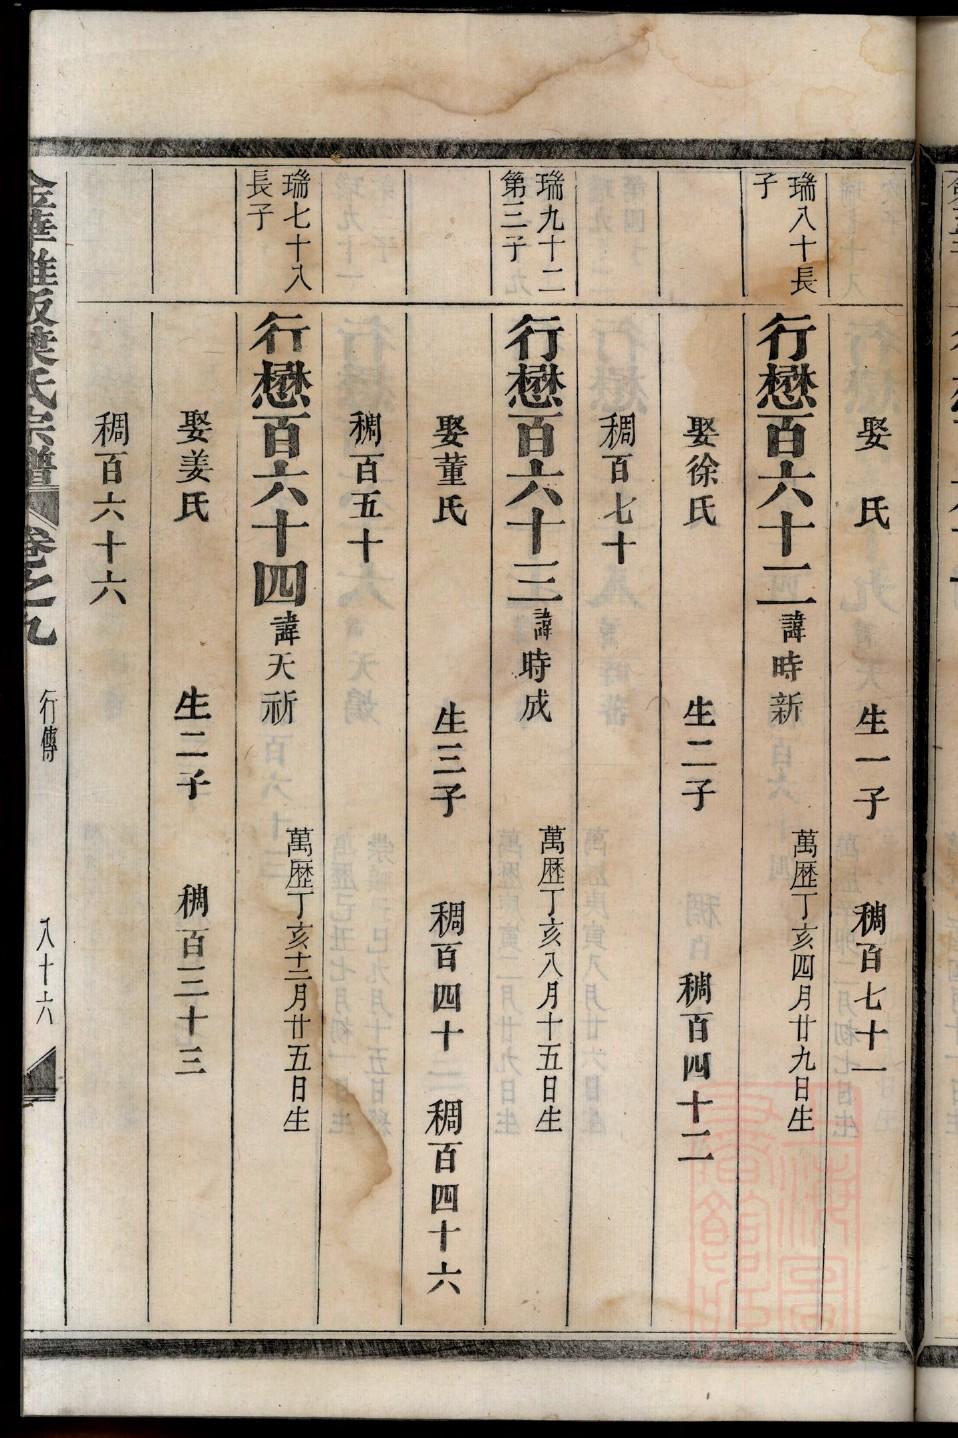 娶　氏　生一子　稠百七十一
瑞八十長子
行懋百六十二諱時新　萬歷丁亥四月廿九日生
娶徐氏　生二子　稠百四十二
稠百七十
瑞九十二第三子
行懋百六十三諱時成　萬歷丁亥八月十五日生
娶董氏　生三子　稠百四十二　稠百四十六
稠百五十
瑞七十八長子
行懋百六十四諱天祈　萬歷丁亥十二月廿五日生
娶姜氏　生二子　稠百三十三
稠百六十六
葉氏宗譜　卷之九　行傳　八十六